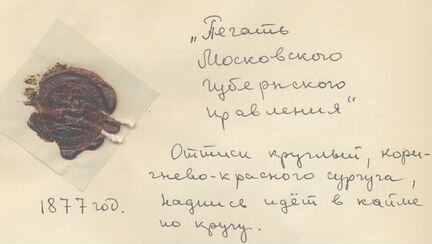 „Печать
Московского
Губернского
правления“
Оттиск круглый, кори-
чнево-красного сургуча,
надпись идёт в кайме
по кругу.
1877 год.